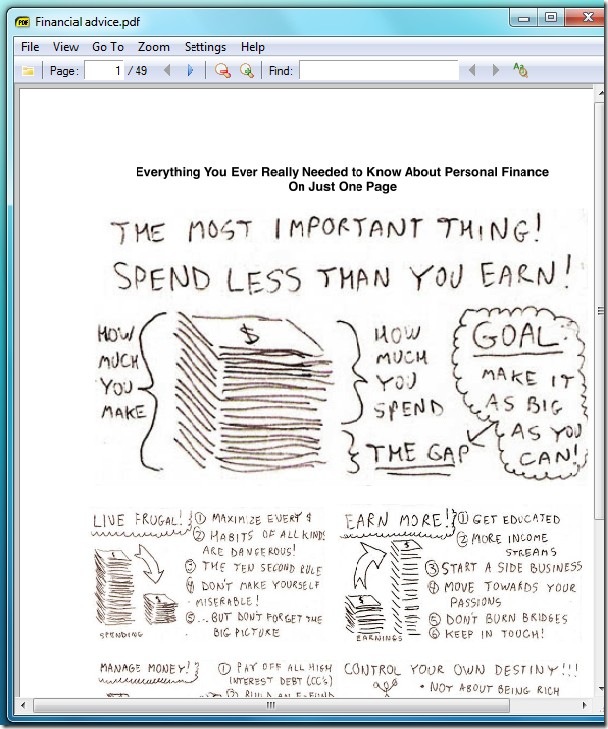 Financial advice.pdf
File View Go To Zoom Settings Help
Page: 1 / 49 Find:
Everything You Ever Really Needed to Know About Personal Finance
On Just One Page
THE MOST IMPORTANT THING!
SPEND LESS THAN YOU EARN!
HOW
MUCH
YOU
MAKE
$
HOW
MUCH
YOU
SPEND
THE GAP
GOAL:
MAKE IT
AS BIG
AS YOU
CAN!
LIVE FRUGAL!
① MAXIMIZE EVERY $
② HABITS OF ALL KINDS
ARE DANGEROUS!
③ THE TEN SECOND RULE
④ DON'T MAKE YOURSELF
MISERABLE!
⑤ ...BUT DON'T FORGET THE
BIG PICTURE
SPENDING
EARN MORE!
① GET EDUCATED
② MORE INCOME
STREAMS
③ START A SIDE BUSINESS
④ MOVE TOWARDS YOUR
PASSIONS
⑤ DON'T BURN BRIDGES
⑥ KEEP IN TOUCH!
EARNINGS
MANAGE MONEY!
① PAY OFF ALL HIGH
INTEREST DEBT (CC'S)
② BUILD AN E-FUND
CONTROL YOUR OWN DESTINY!!!
• NOT ABOUT BEING RICH